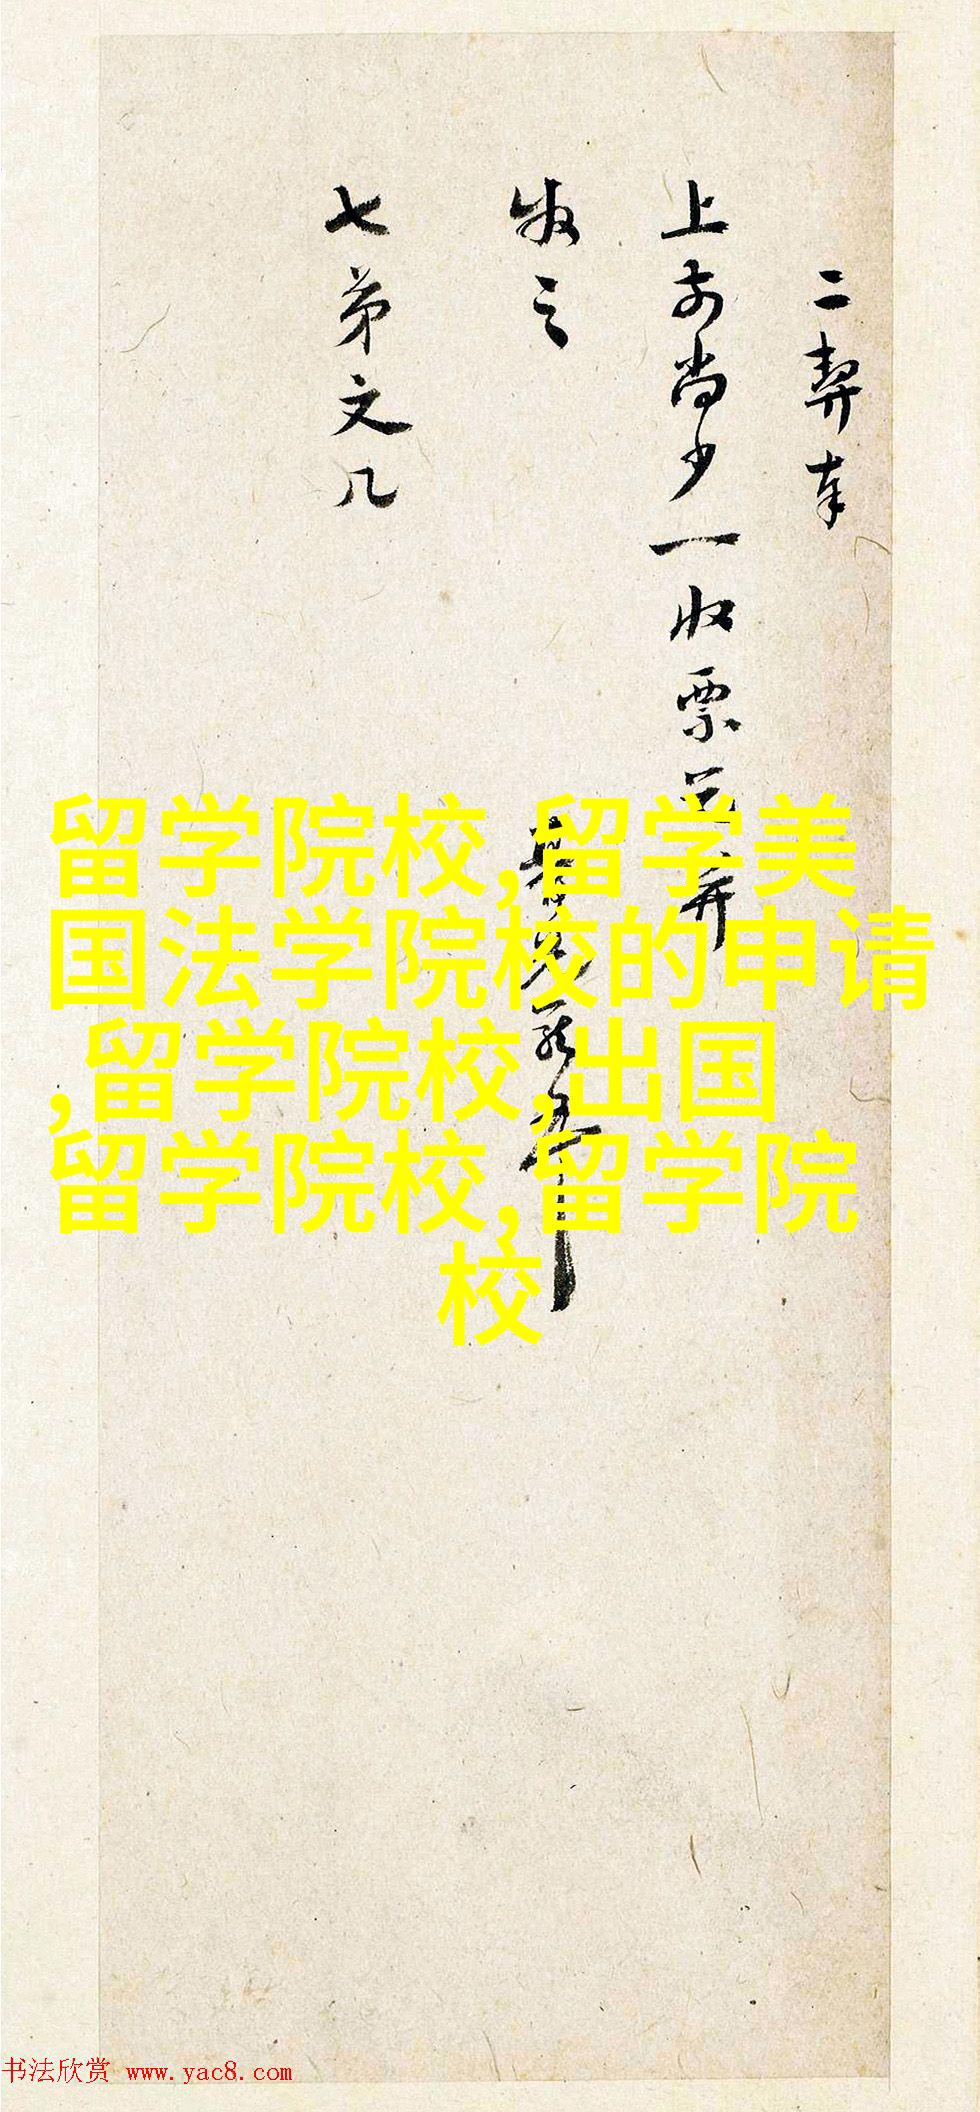 二契奉
上前尚少一收票
收之
七弟文几
留学院校,留学美
国法学院校的申请
,留学院校,出国
留学院校,留学院
校
书法欣赏 www.yac8.com